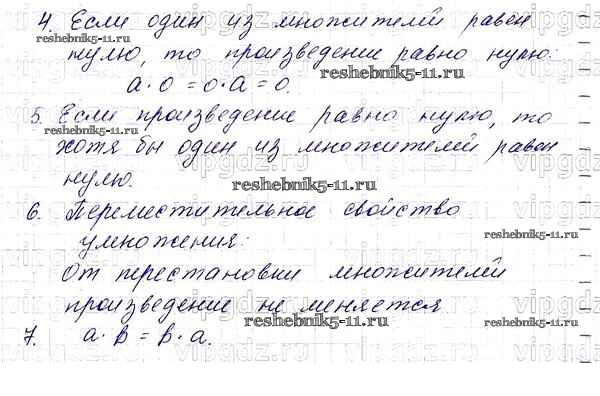 4. Если один из множителей равен
нулю, то произведение равно нулю:
reshebnik5-11.ru
reshebnik5-11.ru
a·0=0·a=0.
5. Если произведение равно нулю, то
reshebnik5-11.ru
хотя бы один из множителей равен
vipgdz.ru
нулю.
reshebnik5-11.ru
6. Переместительное свойство
умножения:
reshebnik5-11.ru
От перестановки множителей
произведение не меняется
vipgdz.ru
reshebnik5-11.ru
reshebnik5-11.ru
7. a·в=в·a.
vipgdz.ru